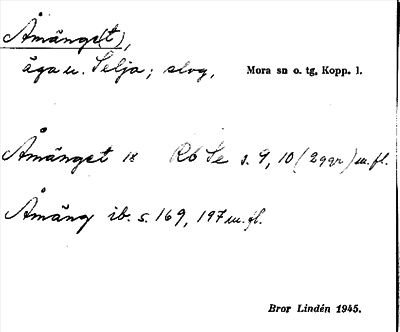 Åmänge(t),
äga u. Selja; slog, Mora sn o. tg, Kopp. l.
Åmänget 18 Rb Se s. 9, 10 (2 ggr) m. fl.
Åmäng ib. s. 169, 197 m. fl.
Bror Lindén 1945.